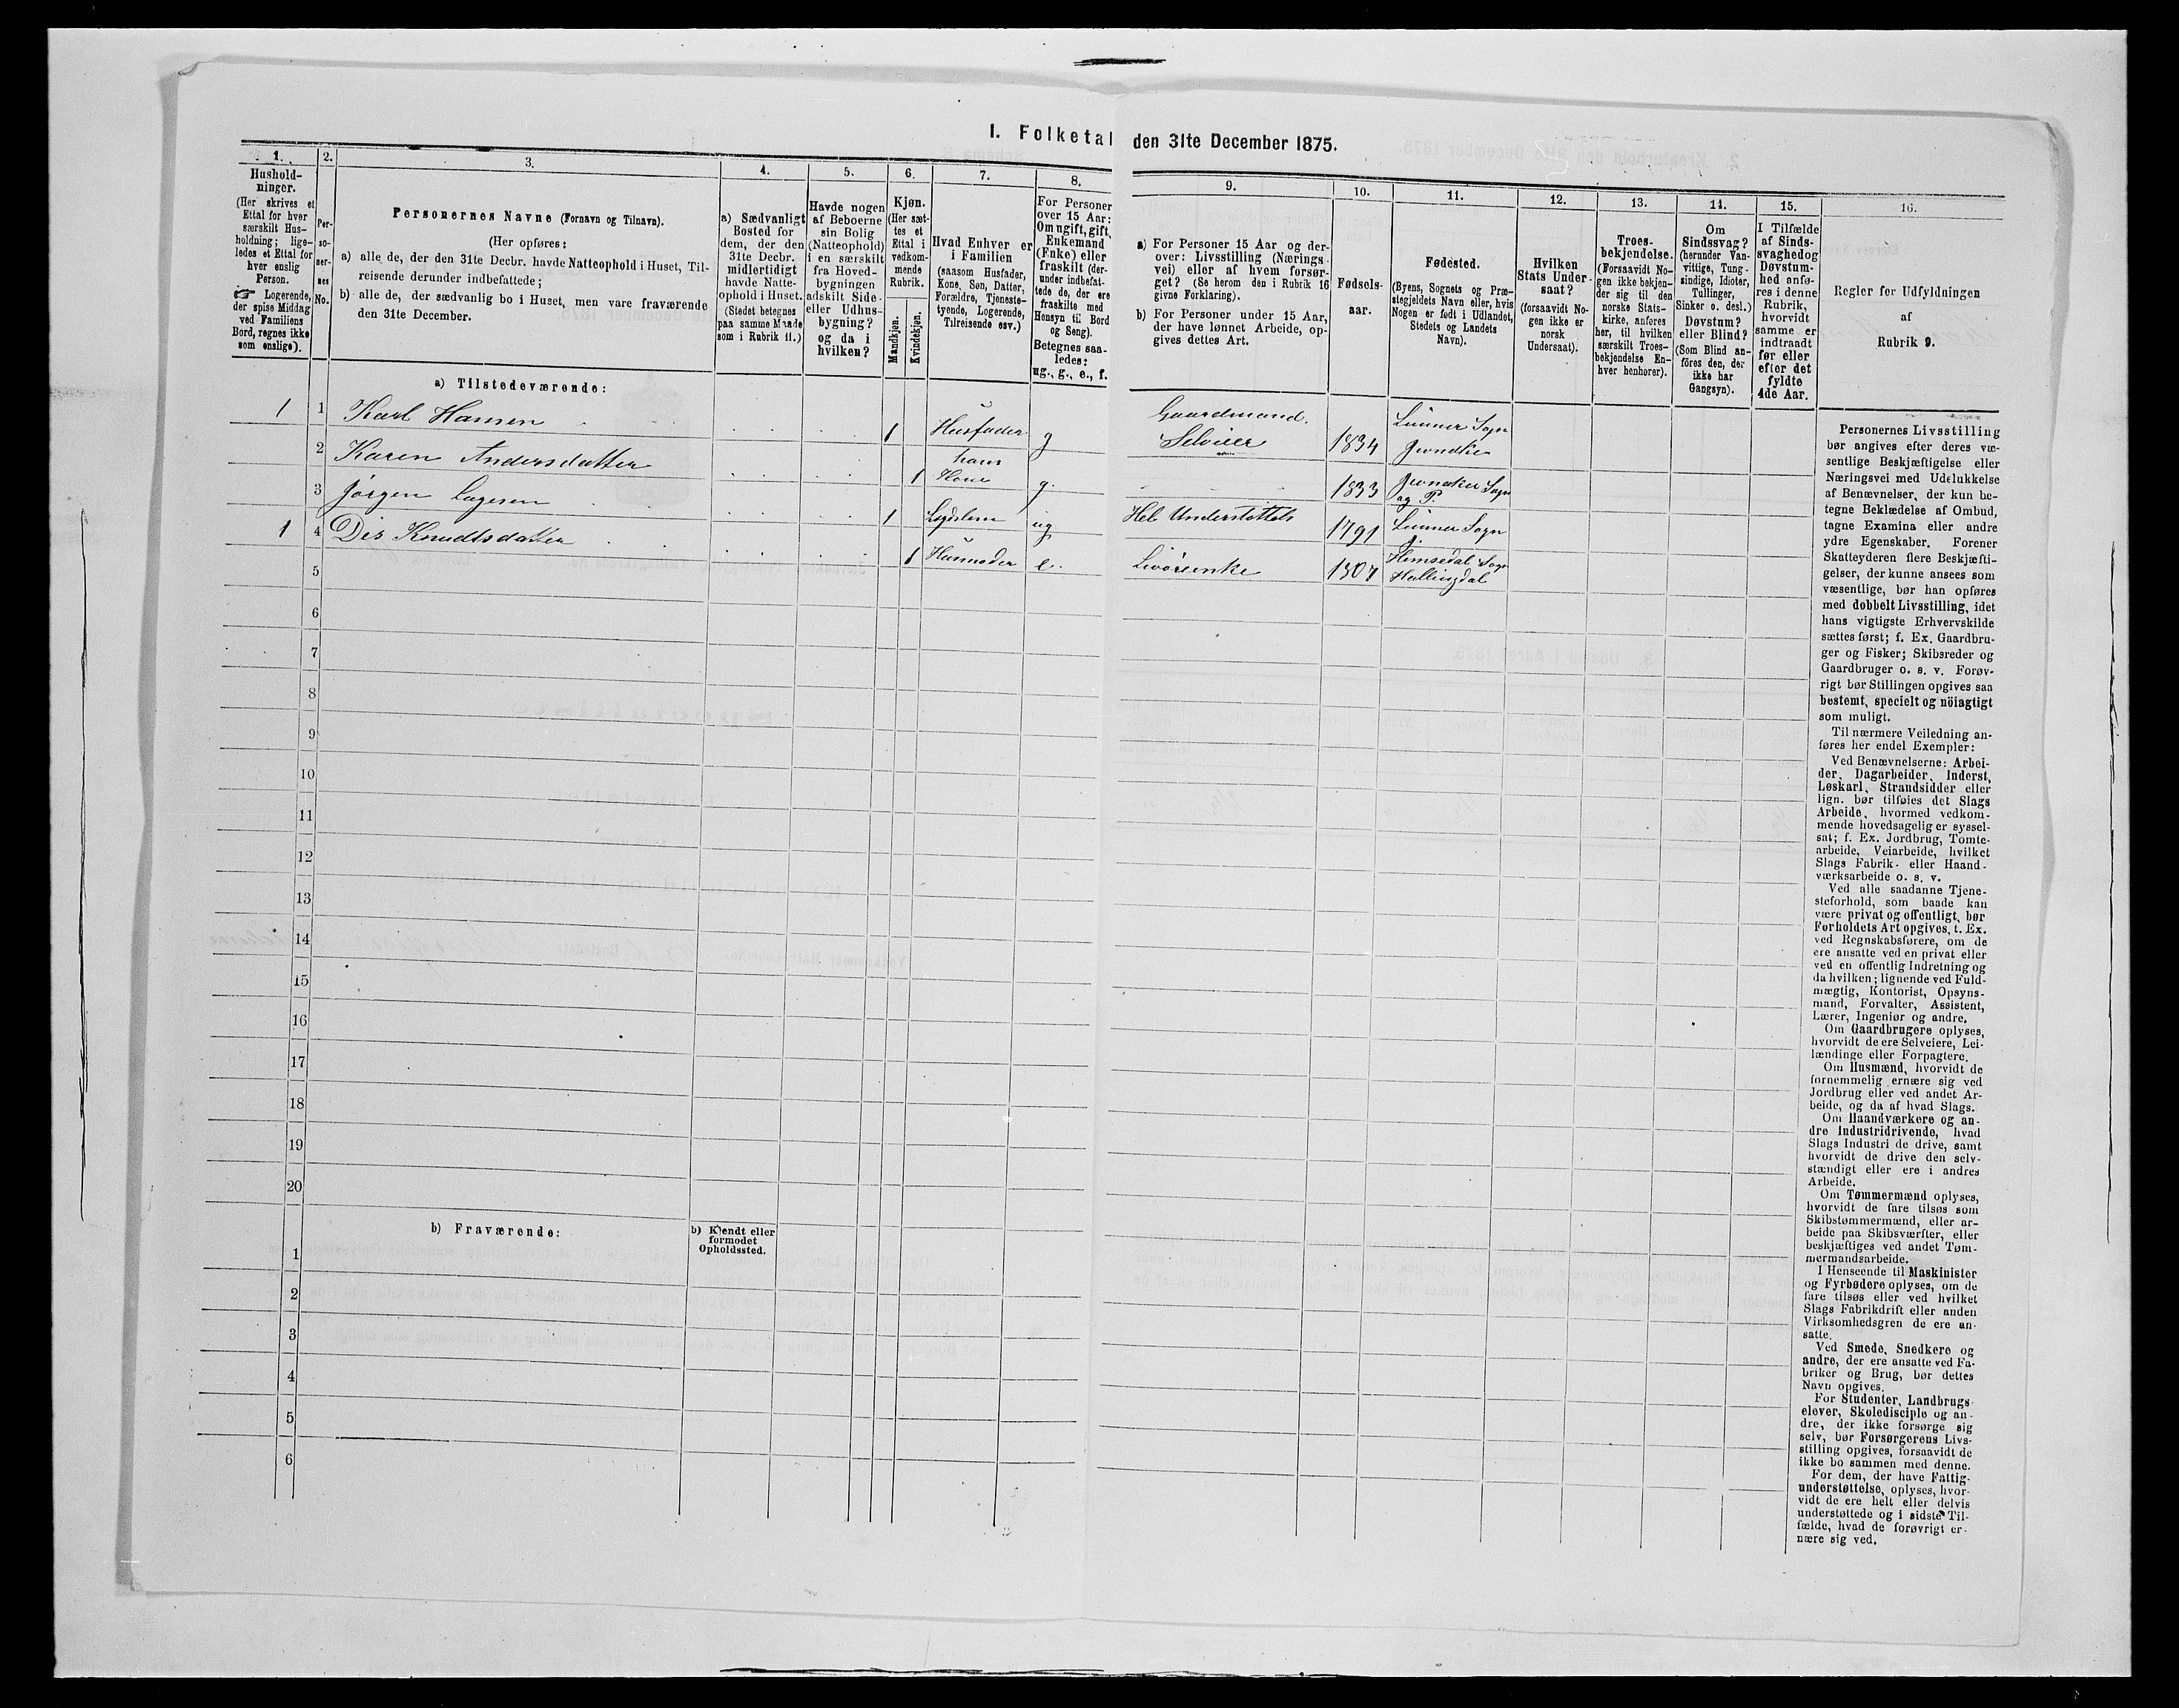 I. Folketal den 31te December 1875.
1.
Hushold-
ninger.
(Her skrives et
Ettal for hver
særskilt Hus-
holdning; lige-
ledes et Ettal for
hver enslig
Person.
☞ Logerende,
der spise Middag
ved Familiens
Bord, regnes ikke
som enslige).
2.
Per-
so-
ner-
nes
No.
3.
Personernes Navne (Fornavn og Tilnavn).
(Her opføres:
a) alle de, der den 31te Decbr. havde Natteophold i Huset, Til-
reisende derunder indbefattede;
b) alle de, der sædvanlig bo i Huset, men vare fraværende
den 31te December.
4.
a) Sædvanligt
Bosted for
dem, der den
31te Decbr.
midlertidigt
havde Natte-
ophold i Huset.
(Stedet betegnes
paa samme Maade
som i Rubrik 11.)
5.
Havde nogen
af Beboerne
sin Bolig
(Natteophold)
i en særskilt
fra Hoved-
bygningen
adskilt Side-
eller Udhus-
bygning?
og da i
hvilken?
6.
Kjøn.
(Her sæt-
tes et
Ettal i
vedkom-
mende
Rubrik.
Mandkjøn.
Kvindekjøn.
7.
Hvad Enhver er
i Familien
(saasom Husfader,
Kone, Søn, Datter,
Forældre, Tjeneste-
tyende, Logerende,
Tilreisende osv.)
8.
For Personer
over 15 Aar:
Om ugift, gift,
Enkemand
(Enke) eller
fraskilt (der-
under indbefat-
tede de, der ere
fraskilte med
Hensyn til Bord
og Seng).
Betegnes saa-
ledes:
ug., g., e., f.
9.
a) For Personer 15 Aar og der-
over: Livsstilling (Nærings-
vei) eller af hvem forsør-
get? (Se herom den i Rubrik 16
givne Forklaring).
b) For Personer under 15 Aar,
der have lønnet Arbeide, op-
gives dettes Art.
10.
Fødsels-
aar.
11.
Fødested.
(Byens, Sognets og Præ-
stegjeldets Navn eller, hvis
Nogen er født i Udlandet,
Stedets og Landets
Navn).
12.
Hvilken
Stats Under-
saat?
(forsaavidt No-
gen ikke er
norsk
Undersaat).
13.
Troes-
bekjendelse.
(Forsaavidt No-
gen ikke bekjen-
der sig til den
norske Stats-
kirke, anføres
her, til hvilken
særskilt Troes-
bekjendelse En-
hver henhører).
14.
Om
Sindssvag?
(herunder Van-
vittige, Tung-
sindige, Idioter,
Tullinger,
Sinker o. desl.)
Døvstum?
eller Blind?
(Som Blind an-
føres den, der
ikke har
Gangsyn).
15.
I Tilfælde
af Sinds-
svaghed og
Døvstum-
hed anfø-
res i denne
Rubrik,
hvorvidt
samme er
indtraadt
før eller
efter det
fyldte
4de Aar.
16.
Regler for Udfyldningen
af
Rubrik 9.
a) Tilstedeværende:
1 1 Karl Hansen 1 Husfader g Gaardmand. Selveier 1834 Lunner Sogn
2 Karen Andersdatter 1 hans Kone g. 1833 Sogn og P.
3 Jørgen 1 Lægdslem ug Hel Understøttels 1791 Lunner Sogn
1 4 Dis Knudtsdatter 1 Husmoder e. 1807 Hemsedal Sogn Hallingdal
5
6
7
8
9
10
11
12
13
14
15
16
17
18
19
20
b) Fraværende:
b) Kjendt eller
formodet
Opholdssted.
1
2
3
4
5
6
Personernes Livsstilling
bør angives efter deres væ-
sentlige Beskjæftigelse eller
Næringsvei med Udelukkelse
af Benævnelser, der kun be-
tegne Beklædelse af Ombud,
tagne Examina eller andre
ydre Egenskaber. Forener
Skatteyderen flere Beskjæfti-
gelser, der kunne ansees som
væsentlige, bør han opføres
med dobbelt Livsstilling, idet
hans vigtigste Erhvervskilde
sættes først; f. Ex. Gaardbru-
ger og Fisker; Skibsreder og
Gaardbruger o. s. v. Forøv-
rigt bør Stillingen opgives saa
bestemt, specielt og nöiagtigt
som muligt.
Til nærmere Veiledning an-
føres her endel Exempler:
Ved Benævnelserne: Arbei-
der, Dagarbeider, Inderst,
Løskarl, Strandsidder eller
lign. bør tilføies det Slags
Arbeide, hvormed vedkom-
mende hovedsagelig er syssel-
sat; f. Ex. Jordbrug, Tomte-
arbeide, Veiarbeide, hvilket
Slags Fabrik- eller Haand-
værksarbeide o. s. v.
Ved alle saadanne Tjene-
steforhold, som baade kan
være privat og offentligt, bør
Forholdets Art opgives, t. Ex.
ved Regnskabsførere, om de
ere ansatte ved en privat eller
ved en offentlig Indretning og
da hvilken; lignende ved Fuld-
mægtig, Kontorist, Opsyns-
mand, Forvalter, Assistent,
Lærer, Ingeniør og andre.
Om Gaardbrugere oplyses,
hvorvidt de ere Selveiere, Lei-
lændinge eller Forpagtere.
Om Husmænd, hvorvidt de
fornemmelig ernære sig ved
Jordbrug eller ved andet Ar-
beide, og da af hvad Slags.
Om Haandværkere og an-
dre Industridrivende, hvad
Slags Industri de drive, samt
hvorvidt de drive den selv-
stændigt eller ere i andres
Arbeide.
Om Tømmermænd oplyses,
hvorvidt de fare tilsøs som
Skibstømmermænd, eller ar-
beide paa Skibsværfter, eller
beskjæftiges ved andet Tøm-
mermandsarbeide.
I Henseende til Maskinister
og Fyrbødere oplyses, om de
fare tilsøs eller ved hvilket
Slags Fabrikdrift eller anden
Virksomhedsgren de ere an-
satte.
Ved Smede, Snedkere og
andre, der ere ansatte ved Fa-
briker og Brug, bør dettes
Navn opgives.
For Studenter, Landbrugs-
elever, Skoledisciple og an-
dre, der ikke forsørge sig
selv, bør Forsørgerens Livs-
stilling opgives, forsaavidt de
ikke bo sammen med denne.
For dem, der have Fattig-
understøttelse, oplyses, hvor-
vidt de ere helt eller delvis
understøttede og i sidste Til-
fælde, hvad de forøvrigt er-
nære sig ved.